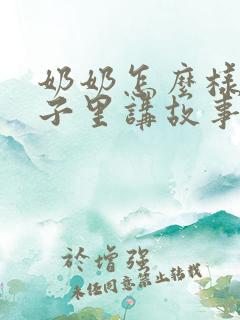 奶奶怎麼樣
子里講故事
於增強
未经同意禁止转载